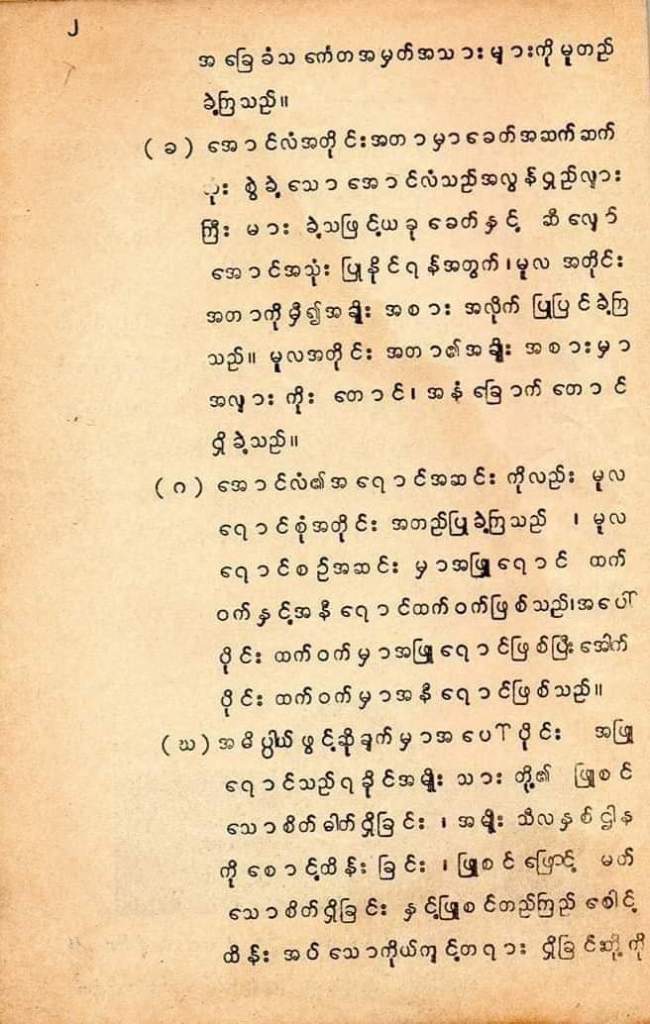 ၂
အခြေခံသင်္ကေတအမှတ်အသားများကိုမူတည်
ခဲ့ကြသည်။
(ခ) အောင်လံအတိုင်းအတာမှာခေတ်အဆက်ဆက်
သုံးစွဲခဲ့သောအောင်လံသည်အလွန်ရှည်လျား
ကြီးမားခဲ့သဖြင့်ယခုခေတ်နှင့် ဆီလျော်
အောင်အသုံးပြုနိုင်ရန်အတွက်၊မူလ အတိုင်း
အတာကိုမှီ၍အချိုးအစား အလိုက် ပြုပြင်ခဲ့ကြ
သည်။ မူလအတိုင်း အတာ၏အချိုးအစားမှာ
အလျားကိုးတောင်၊ အနံခြောက်တောင်
ရှိခဲ့သည်။
(ဂ) အောင်လံ၏အရောင်အဆင်းကိုလည်း မူလ
ရောင်စုံအတိုင်း အတည်ပြုခဲ့ကြသည် ၊ မူလ
ရောင်စဉ်အဆင်းမှာအဖြူရောင် ထက်
ဝက်နှင့်အနီရောင်ထက်ဝက်ဖြစ်သည်၊အပေါ်
ပိုင်းထက်ဝက်မှာအဖြူရောင်ဖြစ်ပြီးအောက်
ပိုင်းထက်ဝက်မှာအနီရောင်ဖြစ်သည်။
(ဃ) အဓိပ္ပါယ်ဖွင့်ဆိုချက်မှာအပေါ်ပိုင်း အဖြူ
ရောင်သည်ရခိုင်အမျိုးသားတို့၏ ဖြူစင်
သောစိတ်ဓါတ်ရှိခြင်း၊ အမျိုးသီလနှစ်ဌါန
ကိုစောင့်ထိန်းခြင်း၊ ဖြူစင်ဖြောင့် မတ်
သောစိတ်ရှိခြင်းနှင့်ဖြူစင်တည်ကြည်စောင့်
ထိန်းအပ်သောကိုယ်ကျင့်တရားရှိခြင်းတို့ကို